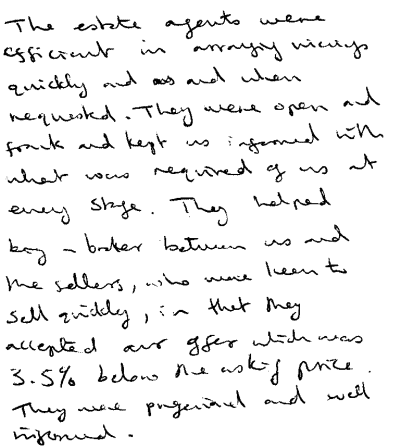 The estate agents were
efficient in arranging viewings
quickly and as and when
requested. They were open and
frank and kept us informed with
what was required of us at
every stage. They helped
broker between us and
the sellers, who were keen to
sell quickly, in that they
accepted our offer which was
3.5% below the asking price.
They were and well
informed.